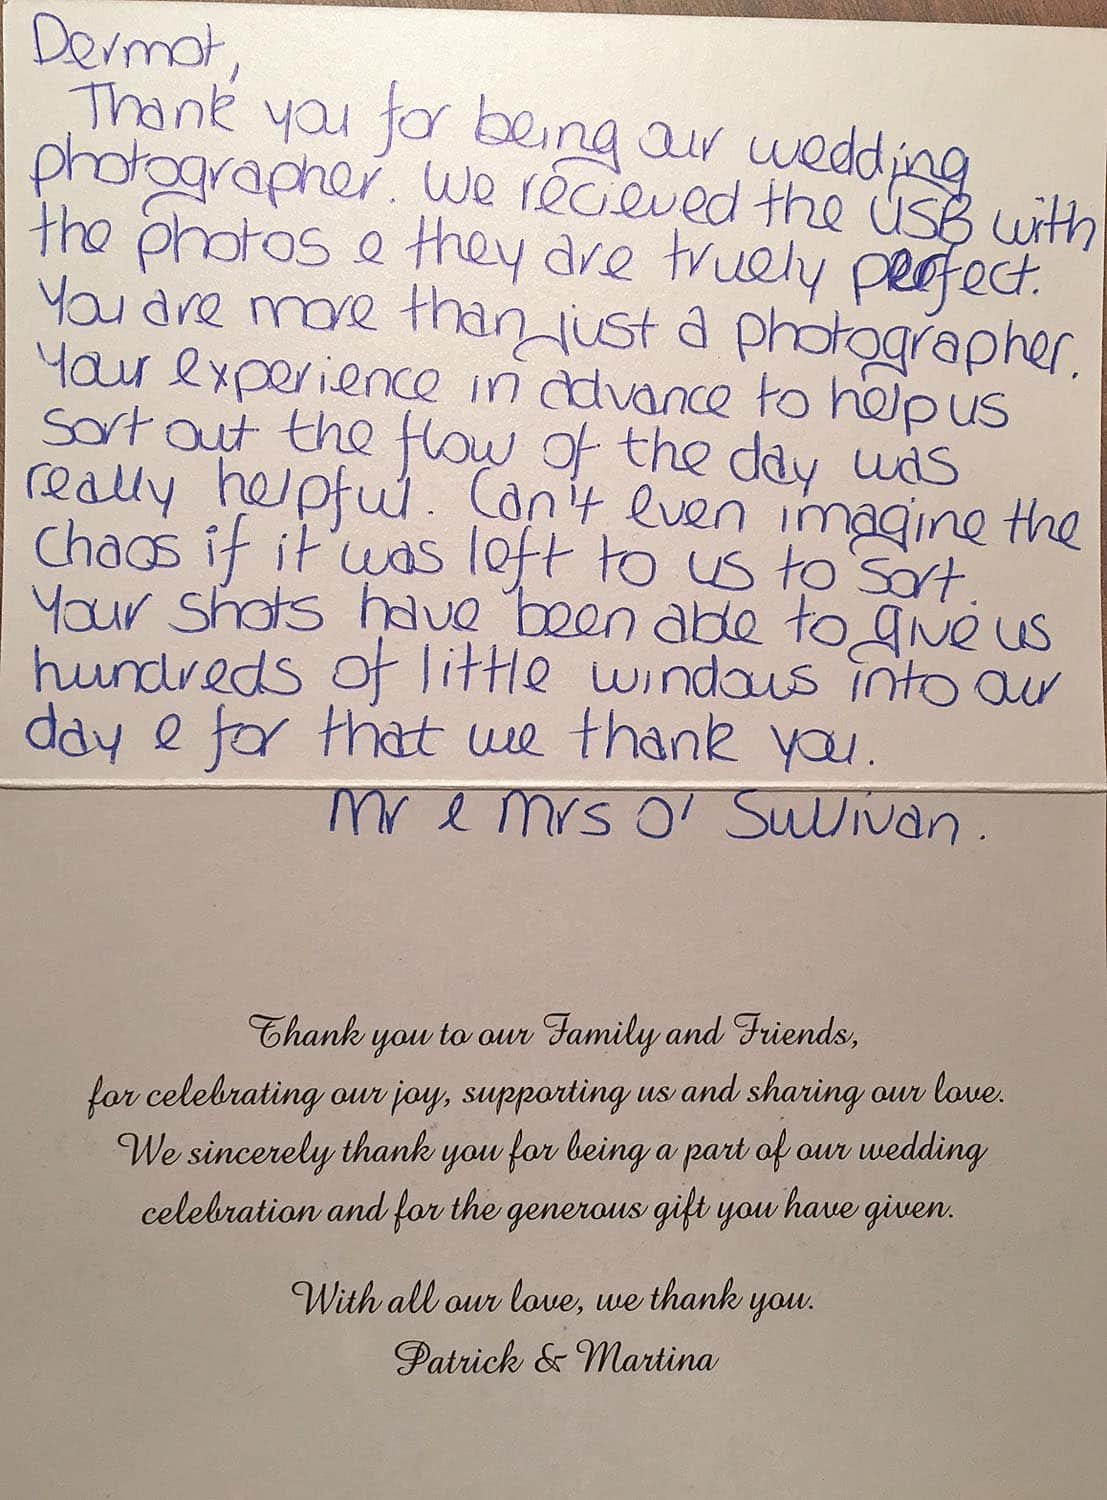 Dermot,
Thank you for being our wedding
photographer. We recieved the USB with
the photos & they are truely perfect.
You are more than just a photographer.
Your experience in advance to help us
sort out the flow of the day was
really helpful. Can't even imagine the
chaos if it was left to us to sort.
Your shots have been able to give us
hundreds of little windows into our
day & for that we thank you.
Mr & Mrs O'Sullivan.
Thank you to our Family and Friends,
for celebrating our joy, supporting us and sharing our love.
We sincerely thank you for being a part of our wedding
celebration and for the generous gift you have given.
With all our love, we thank you.
Patrick & Martina